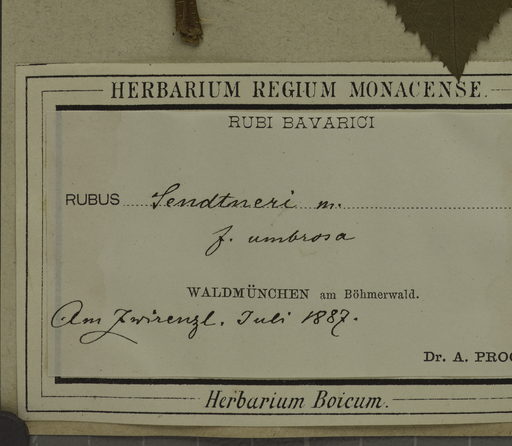 HERBARIUM REGIUM MONACENSE.
RUBI BAVARICI
RUBUS Sendtneri m.
f. umbrosa
WALDMÜNCHEN am Böhmerwald.
Am Zwirenzl. Juli 1887.
Dr. A. PROG
Herbarium Boicum.